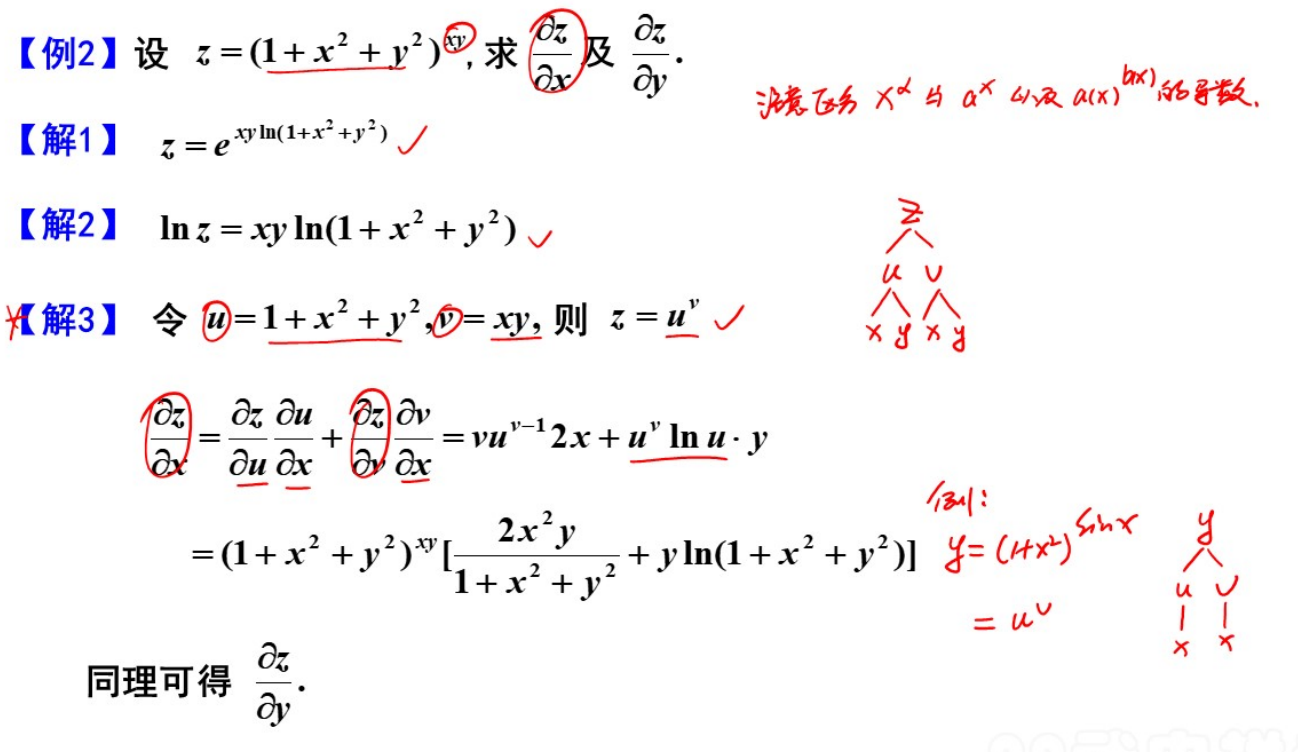 【例2】设 z = (1 + x² + y²)^{xy}, 求 ∂z/∂x 及 ∂z/∂y.
注意区分 x^α 与 a^x 以及 a(x)^{b(x)} 的导数.
【解1】 z = e^{xy ln(1+x²+y²)}
【解2】 ln z = xy ln(1 + x² + y²)
【解3】 令 u = 1 + x² + y², v = xy, 则 z = u^v
z
u v
x y x y
∂z/∂x = ∂z/∂u ∂u/∂x + ∂z/∂v ∂v/∂x = vu^{v−1} 2x + u^v ln u · y
= (1 + x² + y²)^{xy} [2x²y/(1 + x² + y²) + y ln(1 + x² + y²)]
例:
y = (1+x²)^{sin x}
= u^v
y
u v
x x
同理可得 ∂z/∂y.